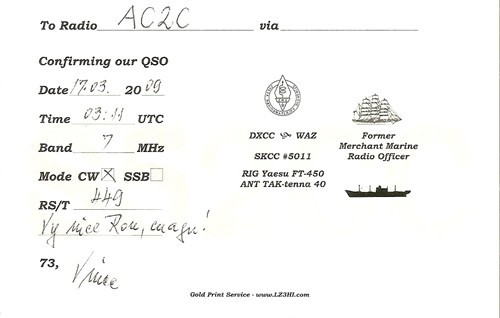 To Radio AC2C via
Confirming our QSO
Date 17.03. 2009
Time 03:11 UTC
Band 7 MHz
Mode CW X SSB
RS/T 449
Vy nice Ron, cuagn!
73, Vince
DXCC WAZ
SKCC #5011
RIG Yaesu FT-450
ANT TAK-tenna 40
Former
Merchant Marine
Radio Officer
Gold Print Service - www.LZ3HI.com